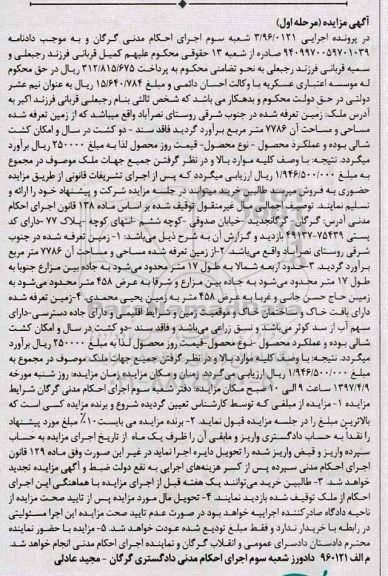 آگهی مزایده (مرحله اول)
در پرونده اجرایی ۳/۹۶/۰۱۲۱ شعبه سوم اجرای احکام مدنی گرگان و به موجب دادنامه
۹۴۰۹۹۷۰۰۵۹۷۰۱۰۳۹ صادره از شعبه ۱۳ حقوقی محکوم علیهم کمیل قربانی فرزند رجبعلی و
سمیه قربانی فرزند رجبعلی به نحو تضامنی محکوم به پرداخت ۳۱۲/۸۱۵/۶۷۵ ریال در حق محکوم
له موسسه اعتباری عسکریه با وکالت احسان دائمی و مبلغ ۱۵/۶۴۰/۷۸۴ ریال به عنوان نیم عشر
دولتی در حق دولت محکوم و بدهکار می باشد که شخص ثالثی بنام رجبعلی قربانی فرزند اکبر به
آدرس ملک: زمین تعرفه شده در جنوب شرقی روستای نصرآباد واقع میباشد که از زمین تعرفه شده
مساحی و مساحت آن ۷۷۸۶ متر مربع برآورد گردید فاقد سند - دو کشت در سال و امکان کشت
شالی بوده و عملکرد محصول - نوع محصول- قیمت روز محصول لذا به مبلغ ۲۵۰۰۰۰ ریال برآورد
میگردد. نتیجه: با وصف کلیه موارد بالا و در نظر گرفتن جمیع جهات ملک موصوف در مجموع
به مبلغ ۱/۹۴۶/۵۰۰/۰۰۰ ریال ارزیابی میگردد که پس از اجرای تشریفات قانونی از طریق مزایده
حضوری به فروش میرسد طالبین خرید میتوانند در جلسه مزایده شرکت و پیشنهاد خود را ارائه و
تسلیم نمایند. توصیف اجمالی مال غیرمنقول توقیف شده بر اساس ماده ۱۳۸ قانون اجرای احکام
مدنی آدرس: گرگان- گرگانجدید- خیابان صدوقی -کوچه ششم -انتهای کوچه -پلاک ۷۷ -دارای کد
پستی ۷۵۴۳۹-۴۹۱۳۷ بازدید و گزارش آن به شرح ذیل می‌باشد: ۱- زمین تعرفه شده در جنوب
شرقی روستای نصرآباد واقع می‌باشد. ۲-از زمین تعرفه شده مساحی و مساحت آن ۷۷۸۶ متر مربع
برآورد گردید. ۳-حدود اربعه شمالا به طول ۱۷ متر محدود می‌شود به جاده بین مزارع جنوبا به
طول ۱۷ متر محدود می‌شود به جاده بین مزارع و شرقا به عرض ۴۵۸ متر محدود می‌شود به
زمین حاج حسن جانی و غربا به عرض ۴۵۸ متر به زمین یحیی محمدی. ۴-زمین تعرفه شده
دارای بافت خاک و ساختمان خاک و موقعیت زمین و شرایط اقلیمی و دارای جاده دسترسی-دارای
سهم آب از سد کوثر می‌باشد و نسق زراعی می‌باشد و فاقد سند -دو کشت در سال و امکان کشت
شالی بوده و عملکرد محصول -نوع محصول-قیمت روز محصول لذا به مبلغ ۲۵۰۰۰۰ ریال برآورد
میگردد. نتیجه: با وصف کلیه موارد بالا و در نظر گرفتن جمیع جهات ملک موصوف در مجموع به
مبلغ ۱/۹۴۶/۵۰۰/۰۰۰ ریال ارزیابی می‌گردد. زمان و مکان مزایده زمان مزایده: روز شنبه مورخه
۱۳۹۷/۴/۹ ساعت ۹ الی ۱۰ صبح مکان مزایده: دفتر شعبه سوم اجرای احکام مدنی گرگان شرایط
مزایده ۱- مزایده از مبلغی که توسط کارشناس تعیین گردیده شروع و برنده مزایده کسی است که
بالاترین مبلغ را در جلسه مزایده قبول نماید. ۲- برنده مزایده می بایست ۱۰٪ مبلغ مورد پیشنهاد
را نقدا به حساب دادگستری واریز و مابقی آن را ظرف یک ماه از تاریخ اجرای مزایده به حساب
سپرده واریز و قبض واریز شده را تحویل دایره اجرا نماید در غیر این صورت وفق ماده ۱۲۹ قانون
اجرای احکام مدنی سپرده پس از کسر هزینه‌های اجرایی به نفع دولت ضبط و آگهی مزایده تجدید
خواهد شد. ۳- طالبین خرید می‌توانند یک هفته قبل از اجرای مزایده با هماهنگی این اجرای
احکام از ملک توقیف شده بازدید نمایند. ۴- تحویل مال مورد مزایده پس از تایید صحت مزایده از
ناحیه دادگاه صادر کننده اجراییه خواهد بود در صورت عدم تایید صحت مزایده این اجرا مسئولیتی
در رابطه با خریدار ندارد و فقط مبلغ تودیع شده عودت خواهد شد. ۵- مزایده با حضور نماینده
محترم دادستان دادسرای عمومی و انقلاب گرگان و نماینده اجرای احکام مدنی انجام خواهد شد.
م الف ۹۶۰۱۲۱ دادورز شعبه سوم اجرای احکام مدنی دادگستری گرگان - مجید عادلی